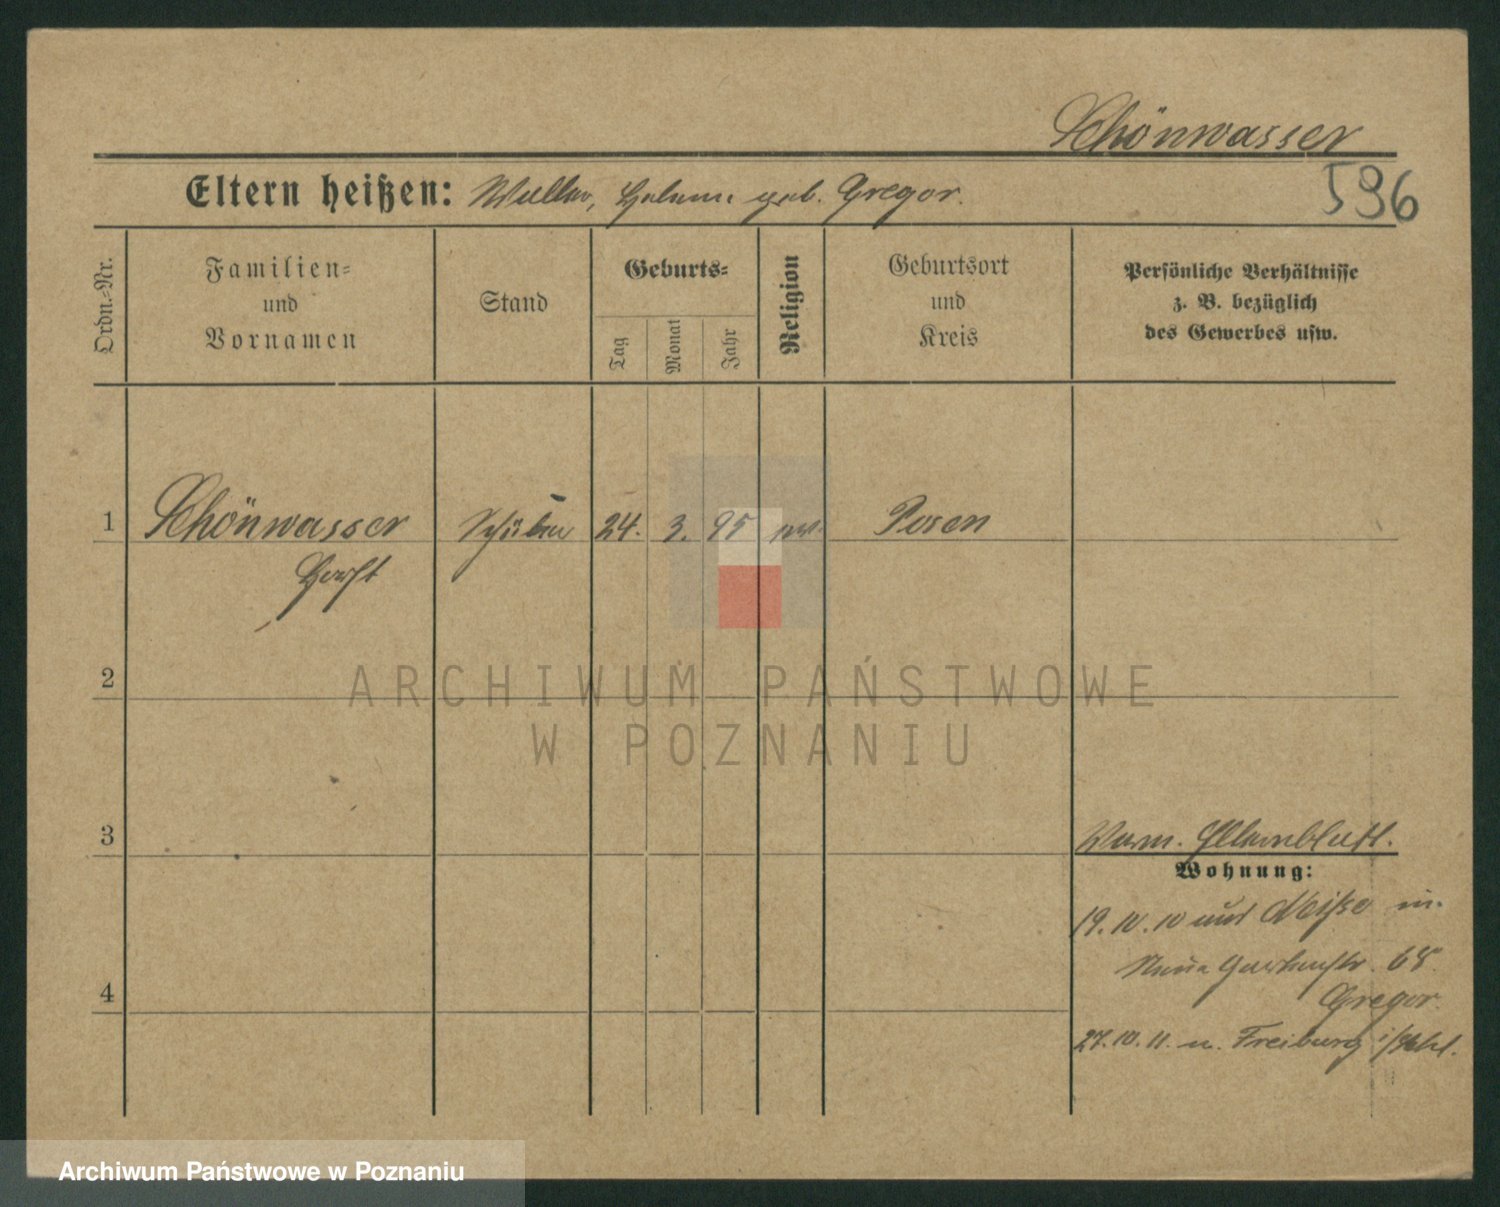 Schönwasser
596
Eltern heißen: Walter, Helene geb. Gregor.
Ordn.=Nr.
Familien=
und
Vornamen
Stand
Geburts=
Tag
Monat
Jahr
Religion
Geburtsort
und
Kreis
Persönliche Verhältnisse
z. B. bezüglich
des Gewerbes usw.
1 Schönwasser Schüler 24. 3. 95 Posen
Horst
2
ARCHIWUM PAŃSTWOWE
W POZNANIU
3
Wohnung:
19. 10. 10 aus Neiße
Neue Gartenstr. 68
Gregor.
4
27. 10. 11. n. Freiburg i/Schl.
Archiwum Państwowe w Poznaniu